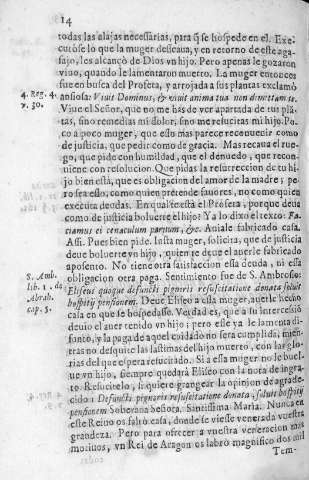 14
todas las alajas necessarias, para q̃ se hospede en el. Exe-
cutòse lo que la muger desseaua, y en retorno de este aga-
sajo, les alcançò de Dios vn hijo. Pero apenas le gozaron
viuo, quando le lamentaron muerto. La muger entonces
fue en busca del Profeta, y arrojada a sus plantas exclamò
4. Reg. 4.
v. 30.
ansiosa: Viuit Dominus, & viuit anima tua non dimittam te.
Viue el Señor, que no me hàs de ver apartada de tus plã-
tas, sino remedias mi dolor, sino me resucitas mi hijo. Po-
co a poco muger, que esso mas parece reconuenir como
de justicia, que pedir como de gracia. Mas recaua el rue-
go, que pide con humildad, que el denuedo, que recon-
uiene con resolucion. Que pidas la resurreccion de tu hi-
jo bien està, que es obligacion del amor de la madre; pe-
ro sea esso, como quien pretende fauores, no como quien
executa deudas. En què te està el Profeta, porque deua
como de justicia boluerte el hijo? Ya lo dixo el texto: Fa-
ciamus ei cœnaculum paruum, &c. Auiale fabricado casa.
Assi. Pues bien pide. Insta muger, solicita, que de justicia
deue boluerte vn hijo, quien te deue el auerle fabricado
aposento. No tiene otra satisfaccion essa deuda, ni essa
obligacion otra paga. Sentimiento fue de S. Ambrosio:
S. Amb.
lib. 1. de
Abrah.
cap. 5.
Eliseus quoque defuncti pignoris resuscitatione donata soluit
hospitij pensionem. Deue Eliseo a essa muger, auerle hecho
casa en que se hospedasse. Verdad es, que a su intercessiõ
deuio el auer tenido vn hijo; pero esse ya le lamenta di-
funto, y la paga de aquel cuidado no serà cumplida, mien-
tras no desquite las lastimas del hijo muerto, con las glo-
rias del que espera resucitado. Si a essa muger no le buel-
ue vn hijo, siempre quedarà Eliseo con la nota de ingra-
to. Resucitelo, si quiere grangear la opinion de agrade-
cido: Defuncti pignoris resuscitatione donata, soluit hospitij
pensionem. Soberana Señora, Santissima Maria. Nunca en
este Reino os faltò casa, donde se viesse venerada vuestra
grandeza. Pero para ofrecer a vuestra veneracion mas
motiuos, vn Rei de Aragon os labrò magnifico dos mil
Tem-